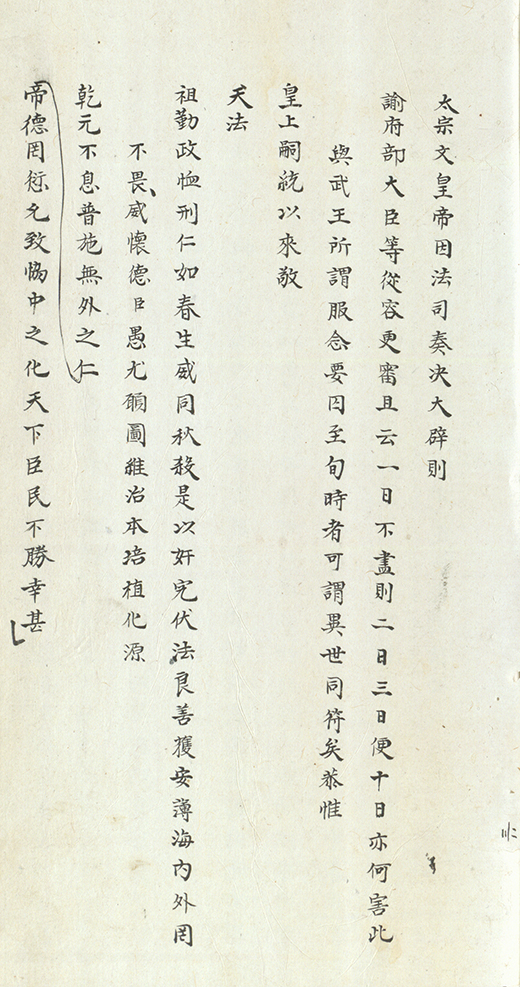 太宗文皇帝因法司奏决大辟則
諭府部大臣等從容更審且云一日不盡則二日三日便十日亦何害此
與武王所謂服念要囚至旬時者可謂異世同符矣恭惟
皇上嗣統以來敬
天法
祖勤政恤刑仁如春生威同秋殺是以奸宄伏法良善獲安薄海內外罔
不畏威懷德臣愚尤願圖維治本培植化源
乾元不息普施無外之仁
帝德罔愆允致恊中之化天下臣民不勝幸甚